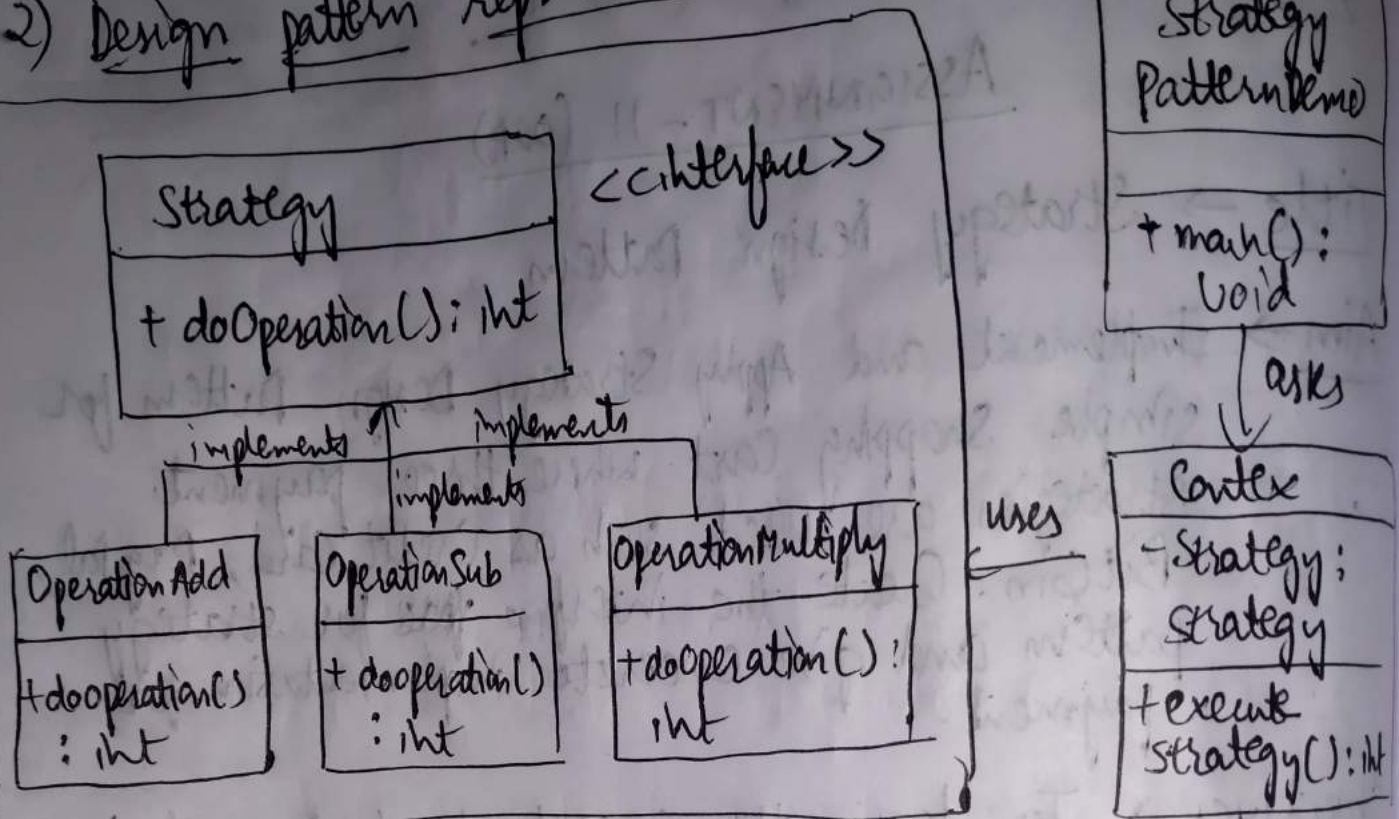 2) Design pattern
Strategy
<<interface>>
+ doOperation(): int
implements
implements
implements
OperationAdd
+dooperation()
: int
OperationSub
+ dooperation()
: int
OperationMultiply
+dooperation():
int
uses
Strategy
PatternDemo
+ main():
void
asks
Contex
- Strategy:
strategy
+execute
strategy(): int